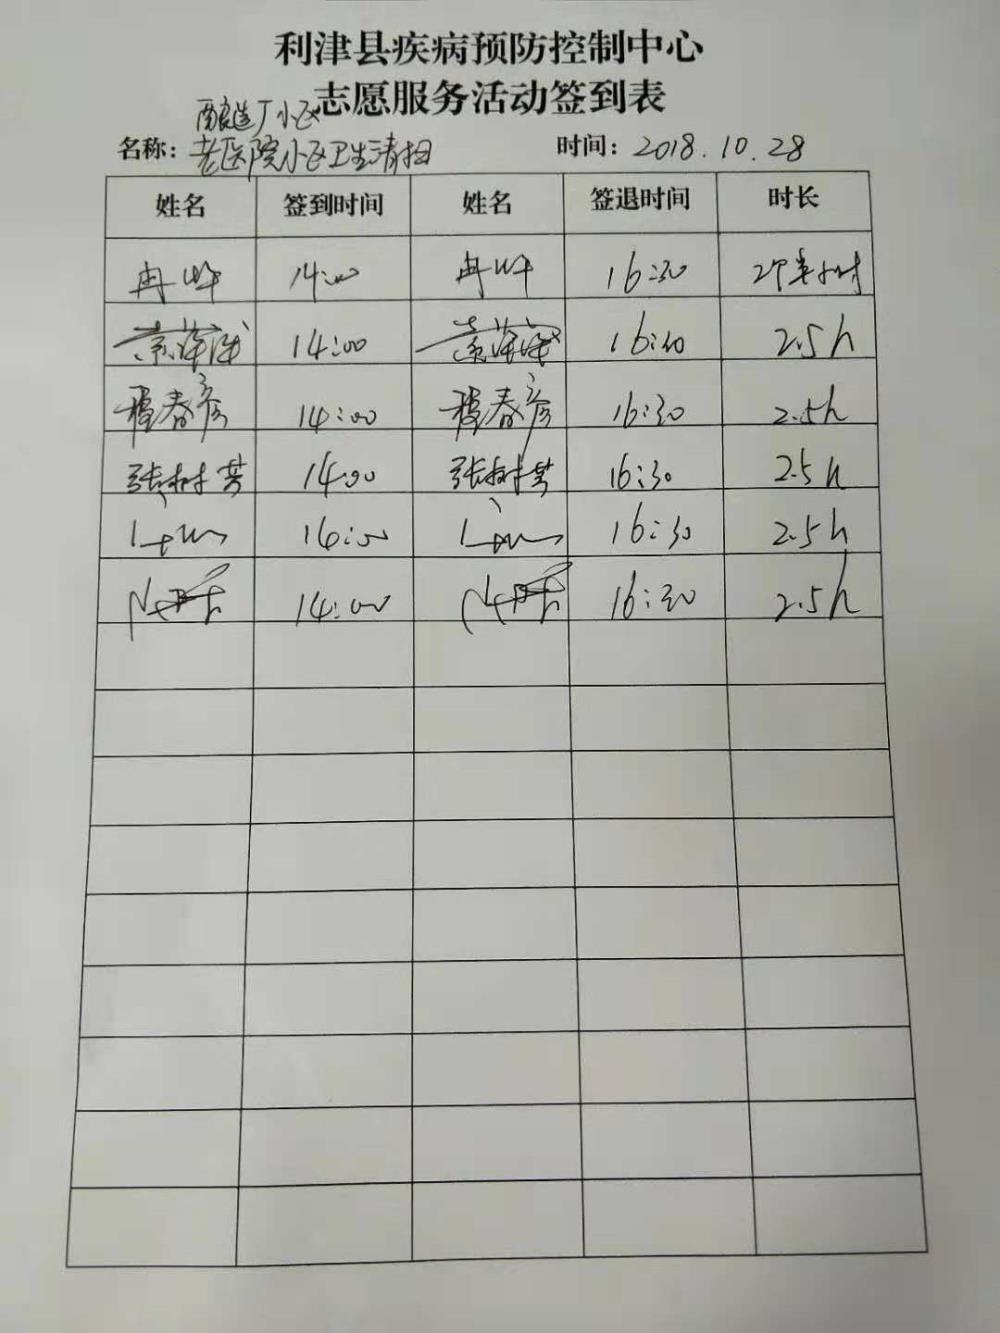 利津县疾病预防控制中心
志愿服务活动签到表
酿造厂小区
名称：老医院小区卫生清扫 时间：2018.10.28
姓名 签到时间 姓名 签退时间 时长
冉峰 14:00 冉峰 16:30 2个半小时
14:00 16:30 2.5h
程春彦 14:00 程春彦 16:30 2.5h
张树芳 14:00 张树芳 16:30 2.5h
14:00 16:30 2.5h
14:00 16:30 2.5h